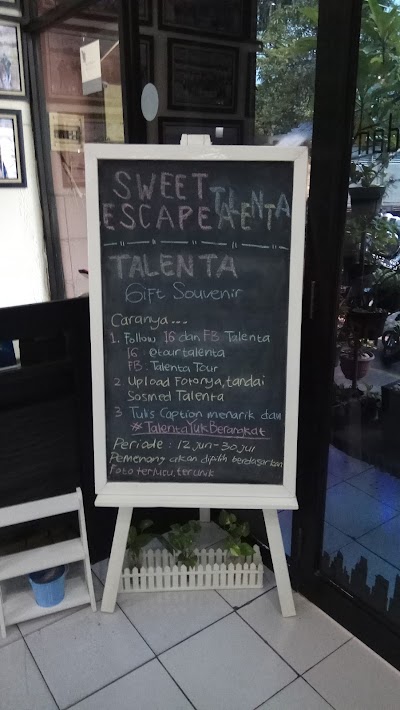 SWEET
ESCAPE TALENTA
TALENTA
Gift Souvenir
Caranya ---
1. Follow IG dan FB Talenta
IG : @tourtalenta
FB : Talenta Tour
2 Upload Fotonya, tandai
Sosmed Talenta
3 Tulis Caption menarik dan
#TalentaYukBerangkat
Periode : 12 Jun - 30 Jul
Pemenang akan dipilih berdasarkan
Foto terlucu, terunik